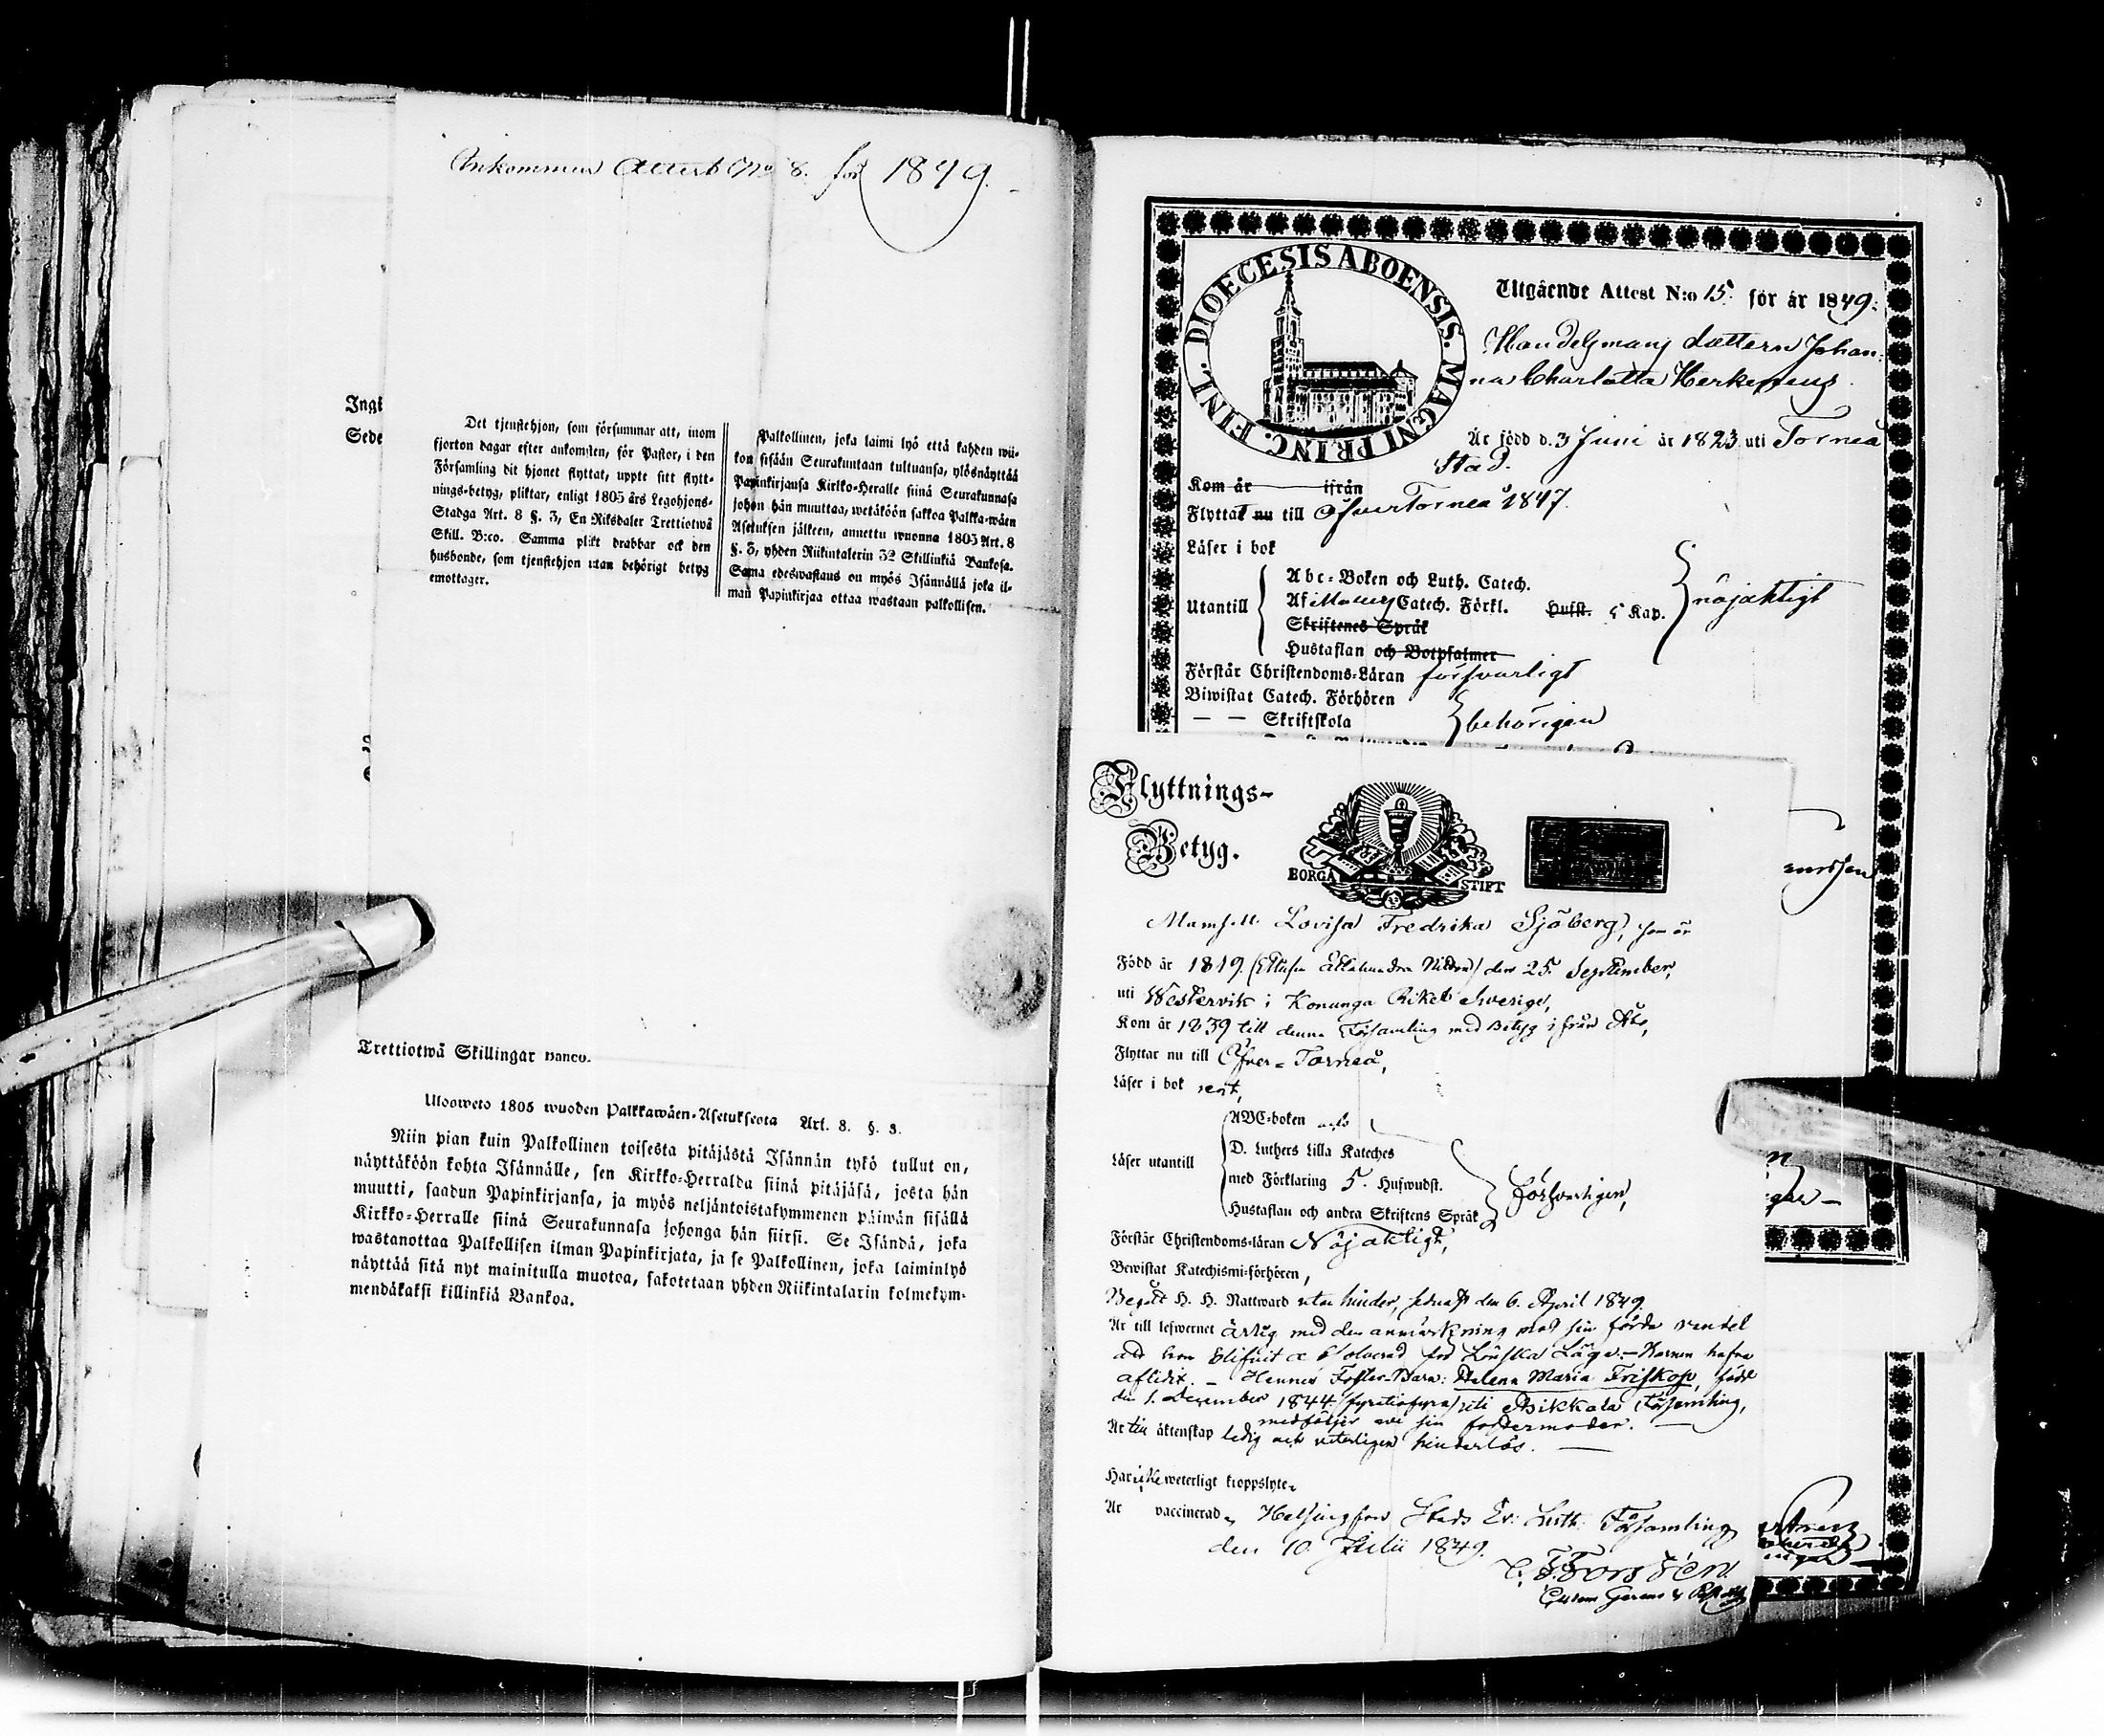 Ankommen Attest No 8. för 1849.
Ingi
Sede
Det tjenstehjon, som försummar att, inom
fjorton dagar efter ankomsten, för Pastor, i den
Församling dit hjonet flyttat, uppte sitt flytt-
nings-betyg, pliktar, enligt 1805 års Legohjons-
Stadga Art. 8 §. 3, En Riksdaler Trettiotwå
Skill. B:co. Samma plikt drabbar ock den
husbonde, som tjenstehjon utan behörigt betyg
emottager.
Palkollinen, joka laimi lyö että kahden wii-
kon sisään Seurakuntaan tultuansa, ylösnäyttää
Papinkirjansa Kirkko-Heralle siinä Seurakunnasa
johon hän muuttaa, wetäköön sakkoa Palkka-wäen
Asetuksen jälkeen, annettu wuonna 1805 Art. 8
§. 3, yhden Riikintalerin 32 Skillinkiä Bankosa.
Sama edeswastaus on myös Isännällä joka il-
man Papinkirjaa ottaa wastaan palkollisen.
Trettiotwå Skillingar Banco.
Ulosweto 1805 wuoden Palkkawäen-Asetuksesta Art. 8. §. 3.
Niin pian kuin Palkollinen toisesta pitäjästä Isännän tykö tullut on,
näyttäköön kohta Isännälle, sen Kirkko-Herralda siinä pitäjäsä, josta hän
muutti, saadun Papinkirjansa, ja myös neljäntoistakymmenen päiwän sisällä
Kirkko-Herralle siinä Seurakunnasa johonga hän siirsi. Se Isändä, joka
wastanottaa Palkollisen ilman Papinkirjata, ja se Palkollinen, joka laiminlyö
näyttää sitä nyt mainitulla muotoa, sakotetaan yhden Riikintalarin kolmekym-
mendäkaksi killinkiä Bankoa.
DIOECESIS ABOENSIS. MAGNI PRINC. FINL.
Utgående Attest N:o 15. för år 1849.
Handelsmans dottern Johan-
na Charlotta
Är född d. 3 Juni år 1823 uti Torneå
Stad.
Kom år ifrån
Flyttat nu till ÖfverTorneå 1847.
Läser i bok
Utantill
Abc-Boken och Luth. Catech.
Catech. Förkl. Hufst. 5 Kap.
Skriftenes Språk
Hustaflan och Botpsalmer
nöjaktigt
Förstår Christendoms-Läran försvarligt
Biwistat Catech. Förhören
— — Skriftskola
behörigen
Flyttnings-
Betyg.
BORGÅ STIFT
Mamsell Lovisa Fredrika Sjöberg, som är
Född år 1819. (Ettusen Ettahundra Nitton) den 25 September,
uti Westervik i Konunga Riket Sverige,
Kom år 1839 till denna Församling med Betyg ifrån Åbo,
Flyttar nu till Öfver-Torneå,
Läser i bok rent,
Läser utantill
ABC-boken
D. Luthers Lilla Kateches
med Förklaring 5. Hufwudst.
Hustaflan och andra Skriftens Språk
försvarligen,
Förstår Christendoms-läran Nöjaktligt,
Bewistat Katechismi-förhören,
Begått H. H. Nattward utan hinder, sednast den 6. April 1849.
Är till lefwernet ärlig med den anmärkning mot sin förda vandel
att hon blifvit absolverad för Lönska Läge. - Barnen hafva
aflidit. - Hennes Foster-Barn: Helena Maria Friskop, född
den 1. December 1844 (fyratiofyra) uti Församling,
medföljer nu sin fostermoder.
Är till äktenskap ledig och veterligen hinderlös.
Har icke weterligt kroppslyte,
Är vaccinerad, Helsingfors Stads Ev: Luth. Församling
den 10 Julii 1849.
C. F. Forstén.